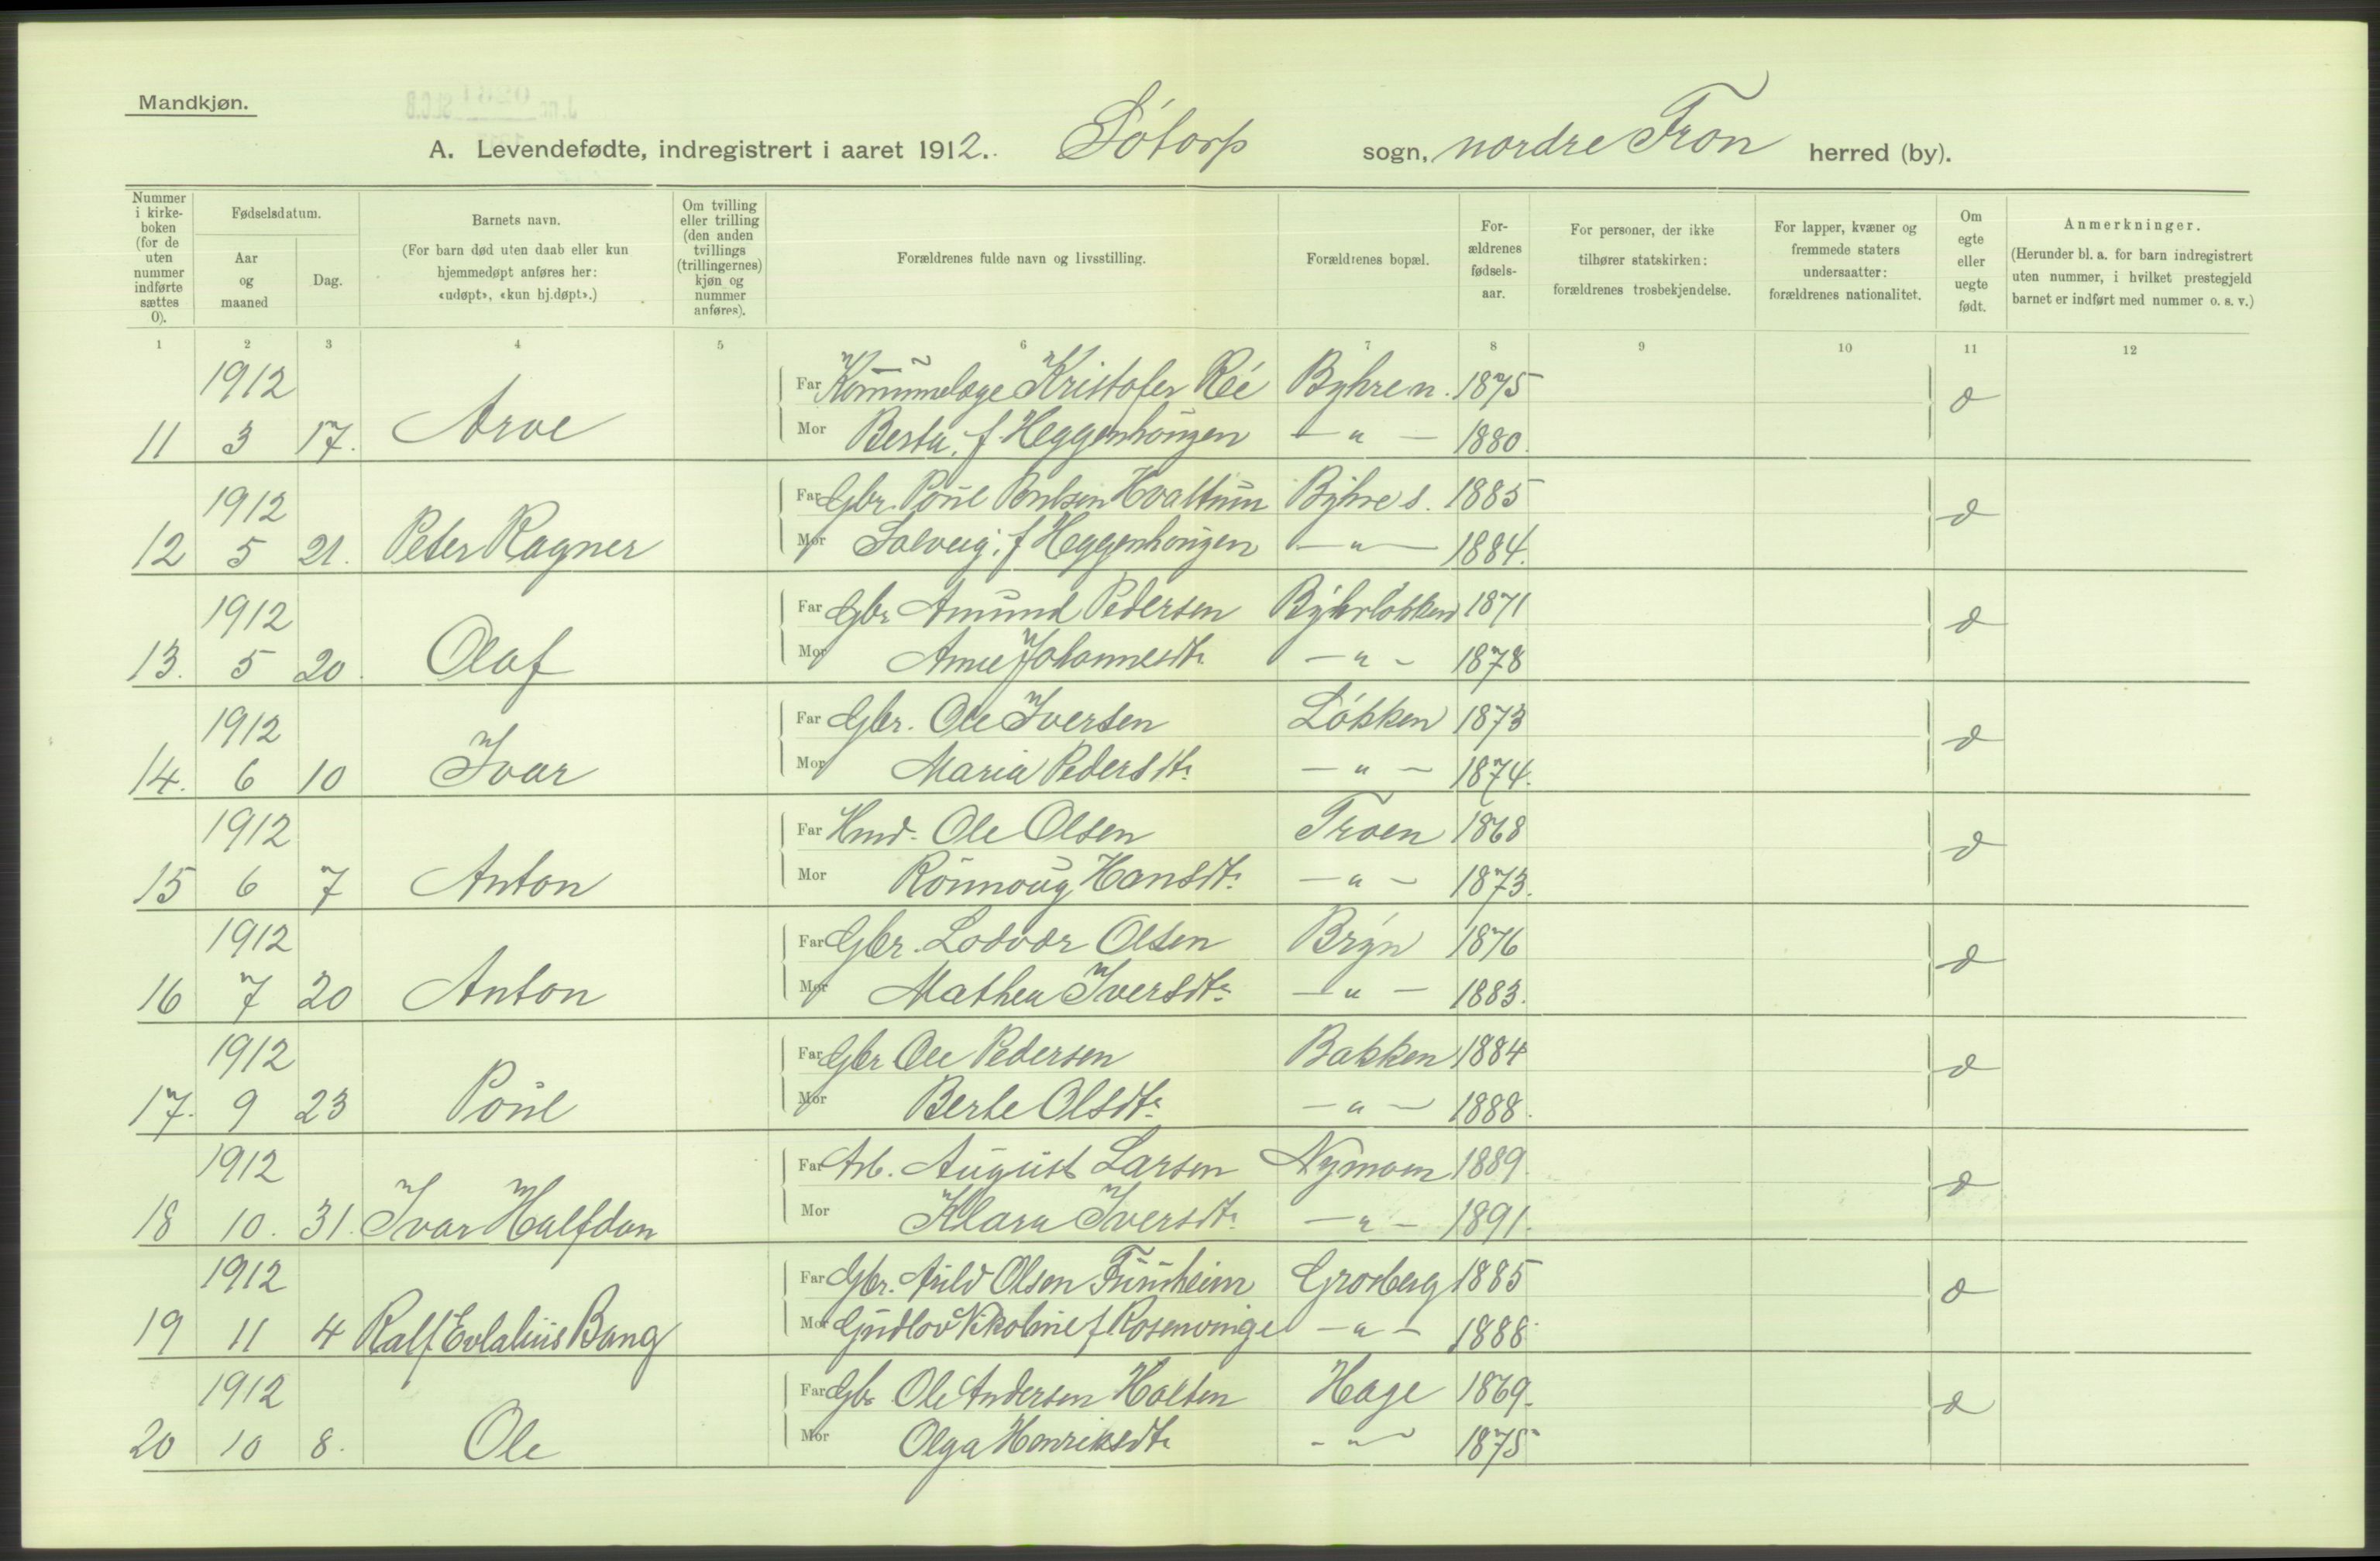 Mandkjøn.
A. Levendefødte, indregistrert i aaret 1912. Søtorp sogn, nordre Fron herred (by).
Nummer i kirke-boken (for de uten nummer indførte sættes 0).
Fødselsdatum.
Aar og maaned
Dag.
Barnets navn.
(For barn død uten daab eller kun hjemmedøpt anføres her: «udøpt», «kun hj.døpt».)
Om tvilling eller trilling (den anden tvillings (trillingernes) kjøn og nummer anføres).
Forældrenes fulde navn og livsstilling.
Forældrenes bopæl.
For-ældrenes fødsels-aar.
For personer, der ikke tilhører statskirken: forældrenes trosbekjendelse.
For lapper, kvæner og fremmede staters undersaatter: forældrenes nationalitet.
Om egte eller uegte født.
Anmerkninger.
(Herunder bl. a. for barn indregistrert uten nummer, i hvilket prestegjeld barnet er indført med nummer o. s. v.)
1 2 3 4 5 6 7 8 9 10 11 12
1912 Far Kristofer Rée Byhre n. 1875
11 3 17. Arve Mor f. Heggenhougen — " — 1880.
1912 Far Gbr. Poul Byhre s. 1885
12 5 21. Peter Ragner Mor Solveig, f Heggenhougen — " — 1884.
1912 Far Gbr Amund Pedersen Byhrløkken 1871
13. 5 20. Olaf Mor Anne Johannesdtr — " - 1878
1912 Far Gbr. Ole Iversen Løkken 1873
14. 6 10 Ivar Mor Maria Pedersdtr — " — 1874.
1912 Far Hmd. Ole Olsen Troen 1868
15 6 7 Anton Mor Rønnoug Hansdtr. — " - 1873.
1912 Far Gbr. Lodvar Olsen Bryn 1876
16 7 20 Anton Mor Mathea Iversdtr. — " — 1883.
1912 Far Gbr Ole Pedersen Bakken 1884
17. 9 23 Poul Mor Berte Olsdtr. — " — 1888.
1912 Far Arb. August Larsen Nymoen 1889.
18 10. 31. Ivar Halfdan Mor Klara Iversdtr. — " - 1891.
1912 Far Gbr. Olsen 1885
19 11 4 Ralf Bang Mor f Rosenvinge — " - 1888
1912 Far Gbr Ole Andersen Hage 1869.
20 10 8. Ole Mor Olga Henriksdtr - " — 1875